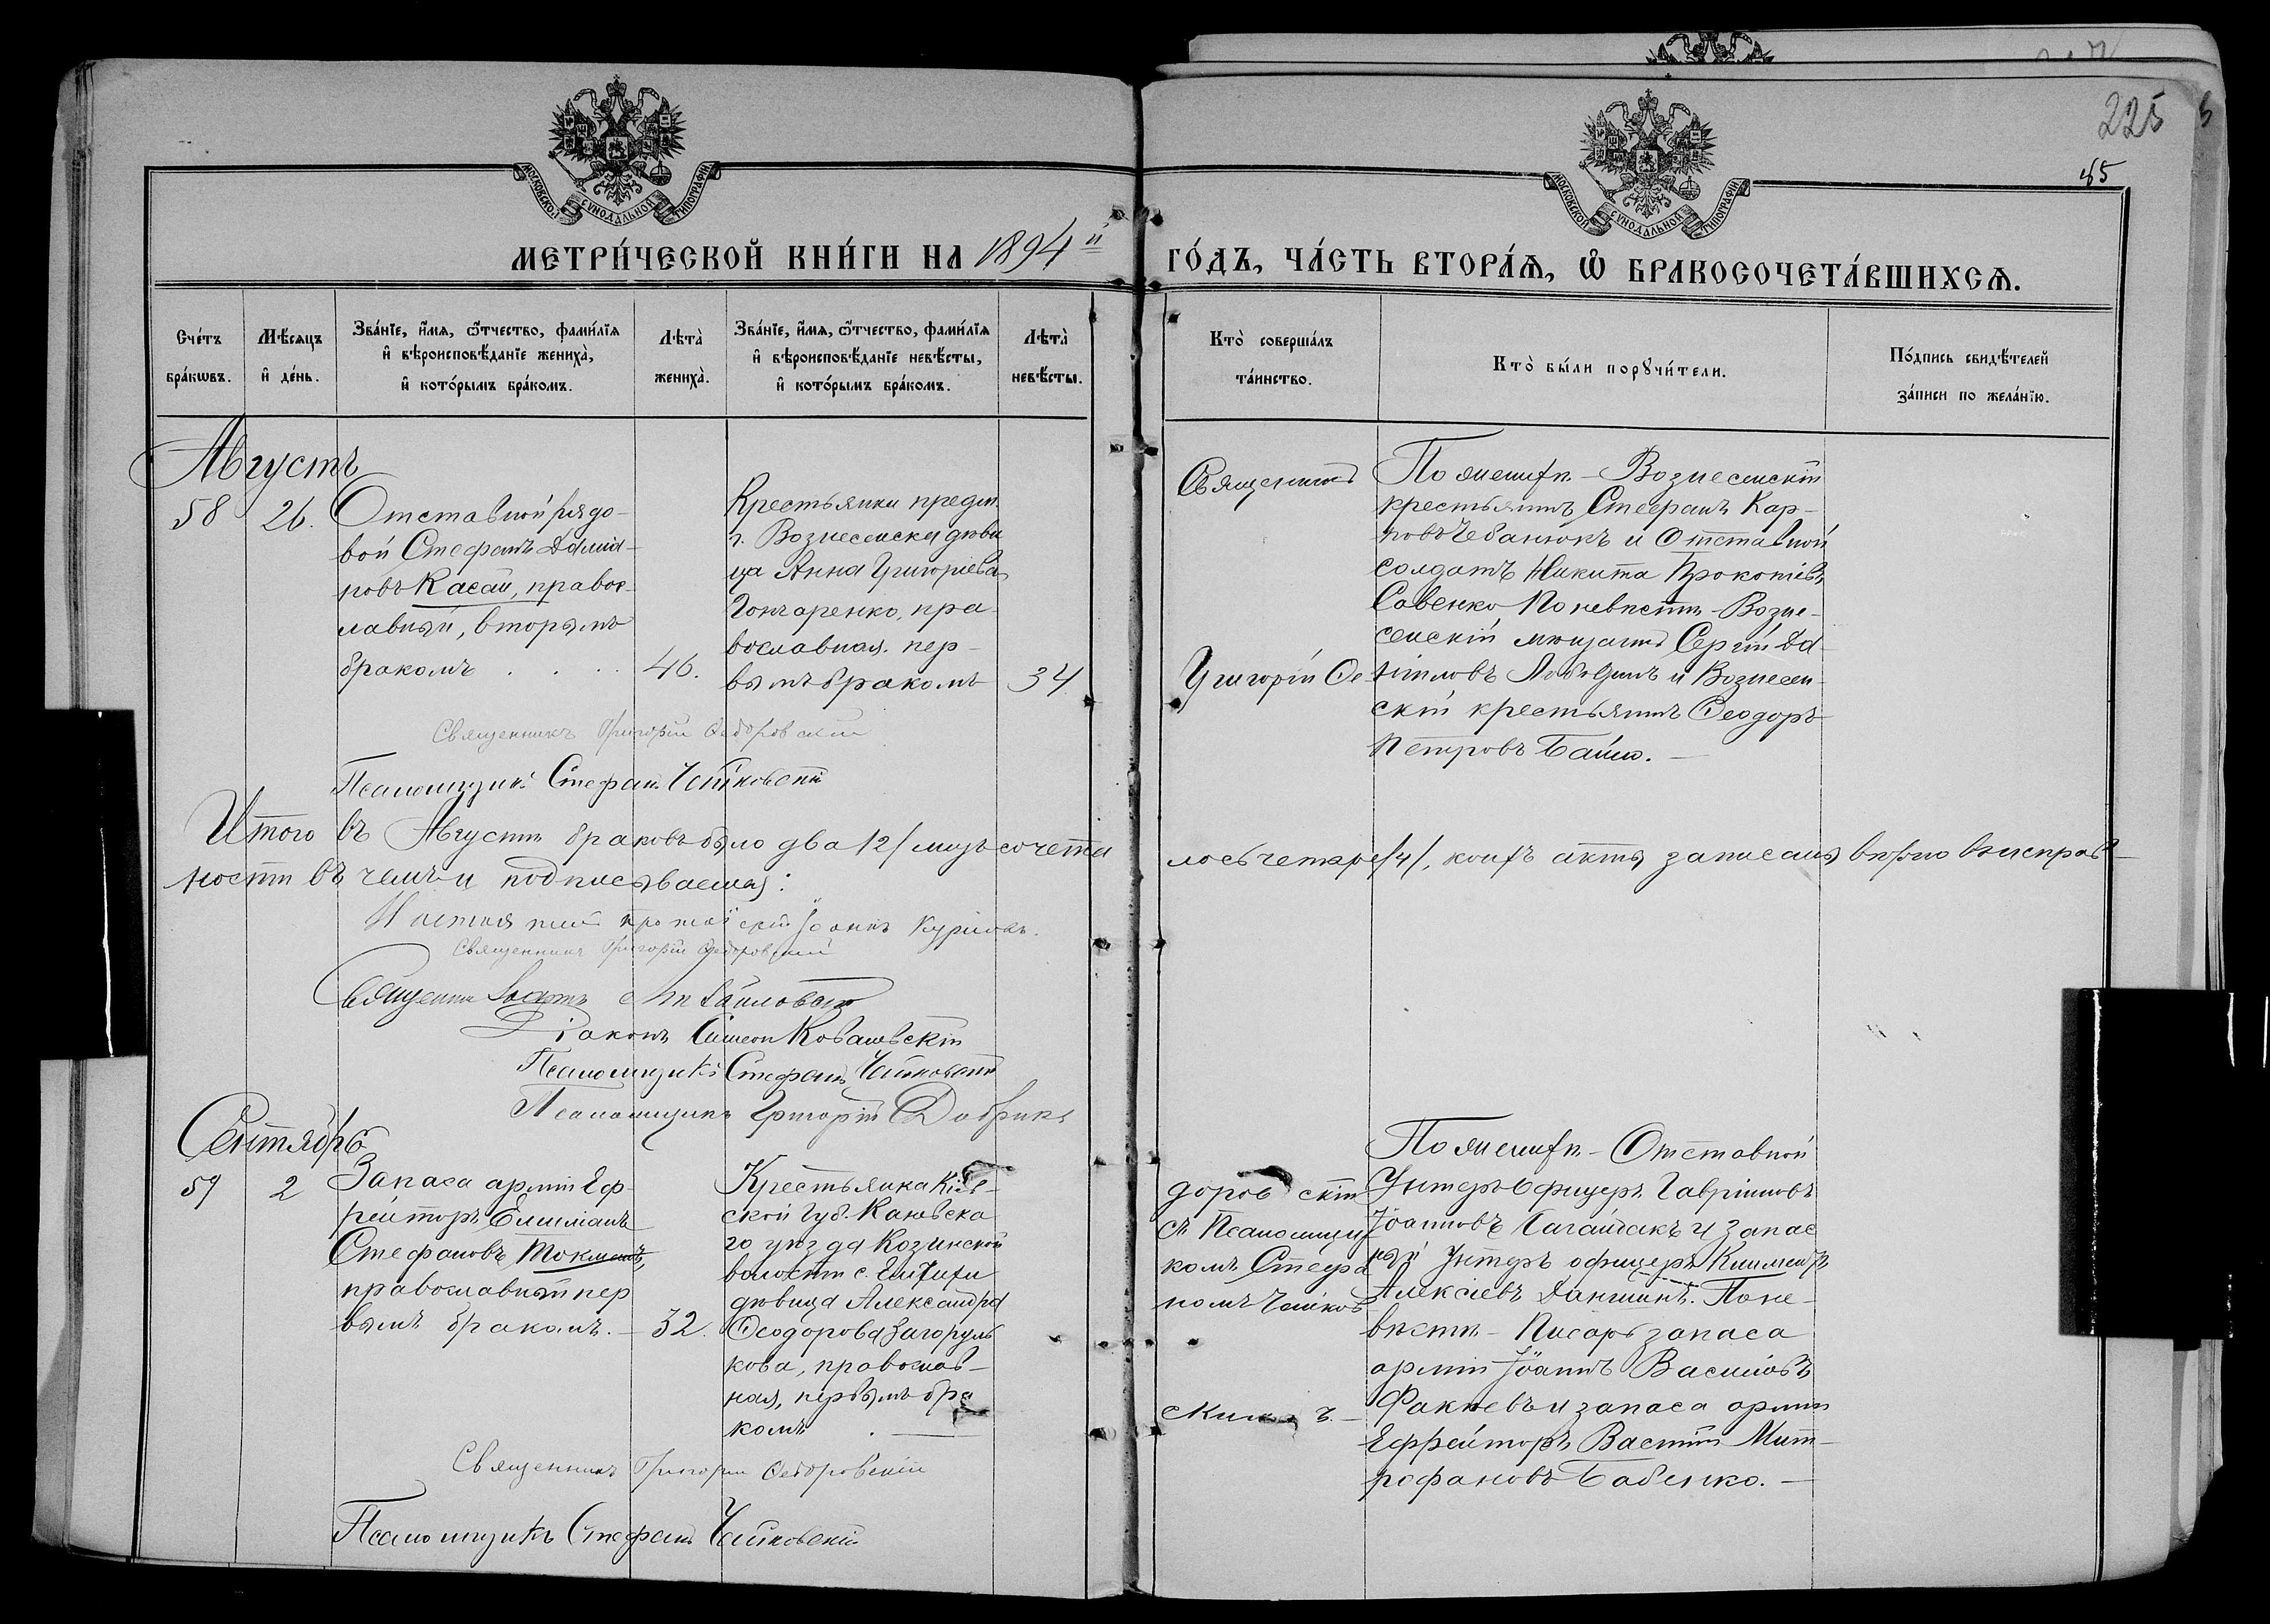 225
85
МОСКОВСКОЙ СѴНОДАЛЬНОЙ ТИПОГРАФІИ
МОСКОВСКОЙ СѴНОДАЛЬНОЙ ТИПОГРАФІИ
МЕТРИ́ЧЕСКОЙ КНИ́ГИ НА 1894й
ГО́ДЪ, ЧА́СТЬ ВТОРА́Ѧ, Ѽ БРАКОСОЧЕТА́ВШИХСѦ.
Сче́тъ бра́кѡвъ.
Мѣ́сѧцъ и҆ де́нь.
Зва́нїе, и҆́мѧ, ѻ҆́тчество, фами́лїѧ
и҆ вѣроисповѣ́данїе жениха̀,
и҆ кото́рымъ бра́комъ.
Лѣта̀ жениха̀.
Зва́нїе, и҆́мѧ, ѻ҆́тчество, фами́лїѧ
и҆ вѣроисповѣ́данїе невѣ́сты,
и҆ кото́рымъ бра́комъ.
Лѣта̀ невѣ́сты.
Кто̀ соверша́лъ
та́инство.
Кто̀ бы́ли порꙋчи́тели.
По́дпись свидѣ́телей
за́писи по жела́нїю.
Августъ
58 26.
Отставной рядо-
вой Стефанъ Даміа-
новъ Касай, правос-
лавный, вторымъ
бракомъ 46.
Крестьянка предм.
г. Вознесенска дѣви
ца Анна Григоріева
Гончаренко, пра-
вославная, пер-
вымъ бракомъ 34
Священникъ
Григорій Ѳе-
По женихѣ - Вознесенскій
крестьянинъ Стефанъ Кар-
повъ Чебанюкъ и Отставной
солдатъ Никита Прокопіевъ
Савенко По невѣстѣ - Возне-
сенскій мѣщанинъ Сергій Да-
ніиловъ и Вознесен-
скій крестьянинъ Ѳеодоръ
Петровъ
Священникъ Григорій Ѳедоровскій
Псаломщикъ Стефанъ Чайковскій
Итого въ Августѣ браковъ было два /2/ лицъ сочета
лось четыре /4/, коихъ акты записаны вѣрно въ исправ-
ности въ чемъ и подписываемся:
протоіерей Іоаннъ
Священникъ Григорій Ѳедоровскій
Священникъ
Діаконъ Симеонъ Ковалевскій
Псаломщикъ Стефанъ Чайковскій
Псаломщикъ Григорій
Сентябрь
59 2
Запаса арміи Еф-
рейторъ
Стефановъ Токмань,
православный пер
вымъ бракомъ. - 32.
Крестьянка Кіев-
ской Губ. Каневска
го уѣзда Козинской
волости с.
дѣвица Александра
Ѳеодорова Загоруль
кова, православ-
ная, первымъ бра
комъ
доровскій
съ Псаломщи-
комъ Стефа
номъ Чайков
скимъ. -
По женихѣ - Отставной
Унтеръ Офицеръ Гавріиловъ
Іоанновъ и запас
ный Унтеръ офицеръ Климентъ
Алексіевъ Поне-
вѣстѣ - Писарь запаса
арміи Іоаннъ Васильевъ
и запаса арміи
Ефрейторъ Василій Мит-
рофановъ Бабенко. -
Священникъ Григорій Ѳедоровскій
Псаломщикъ Стефанъ Чайковскій